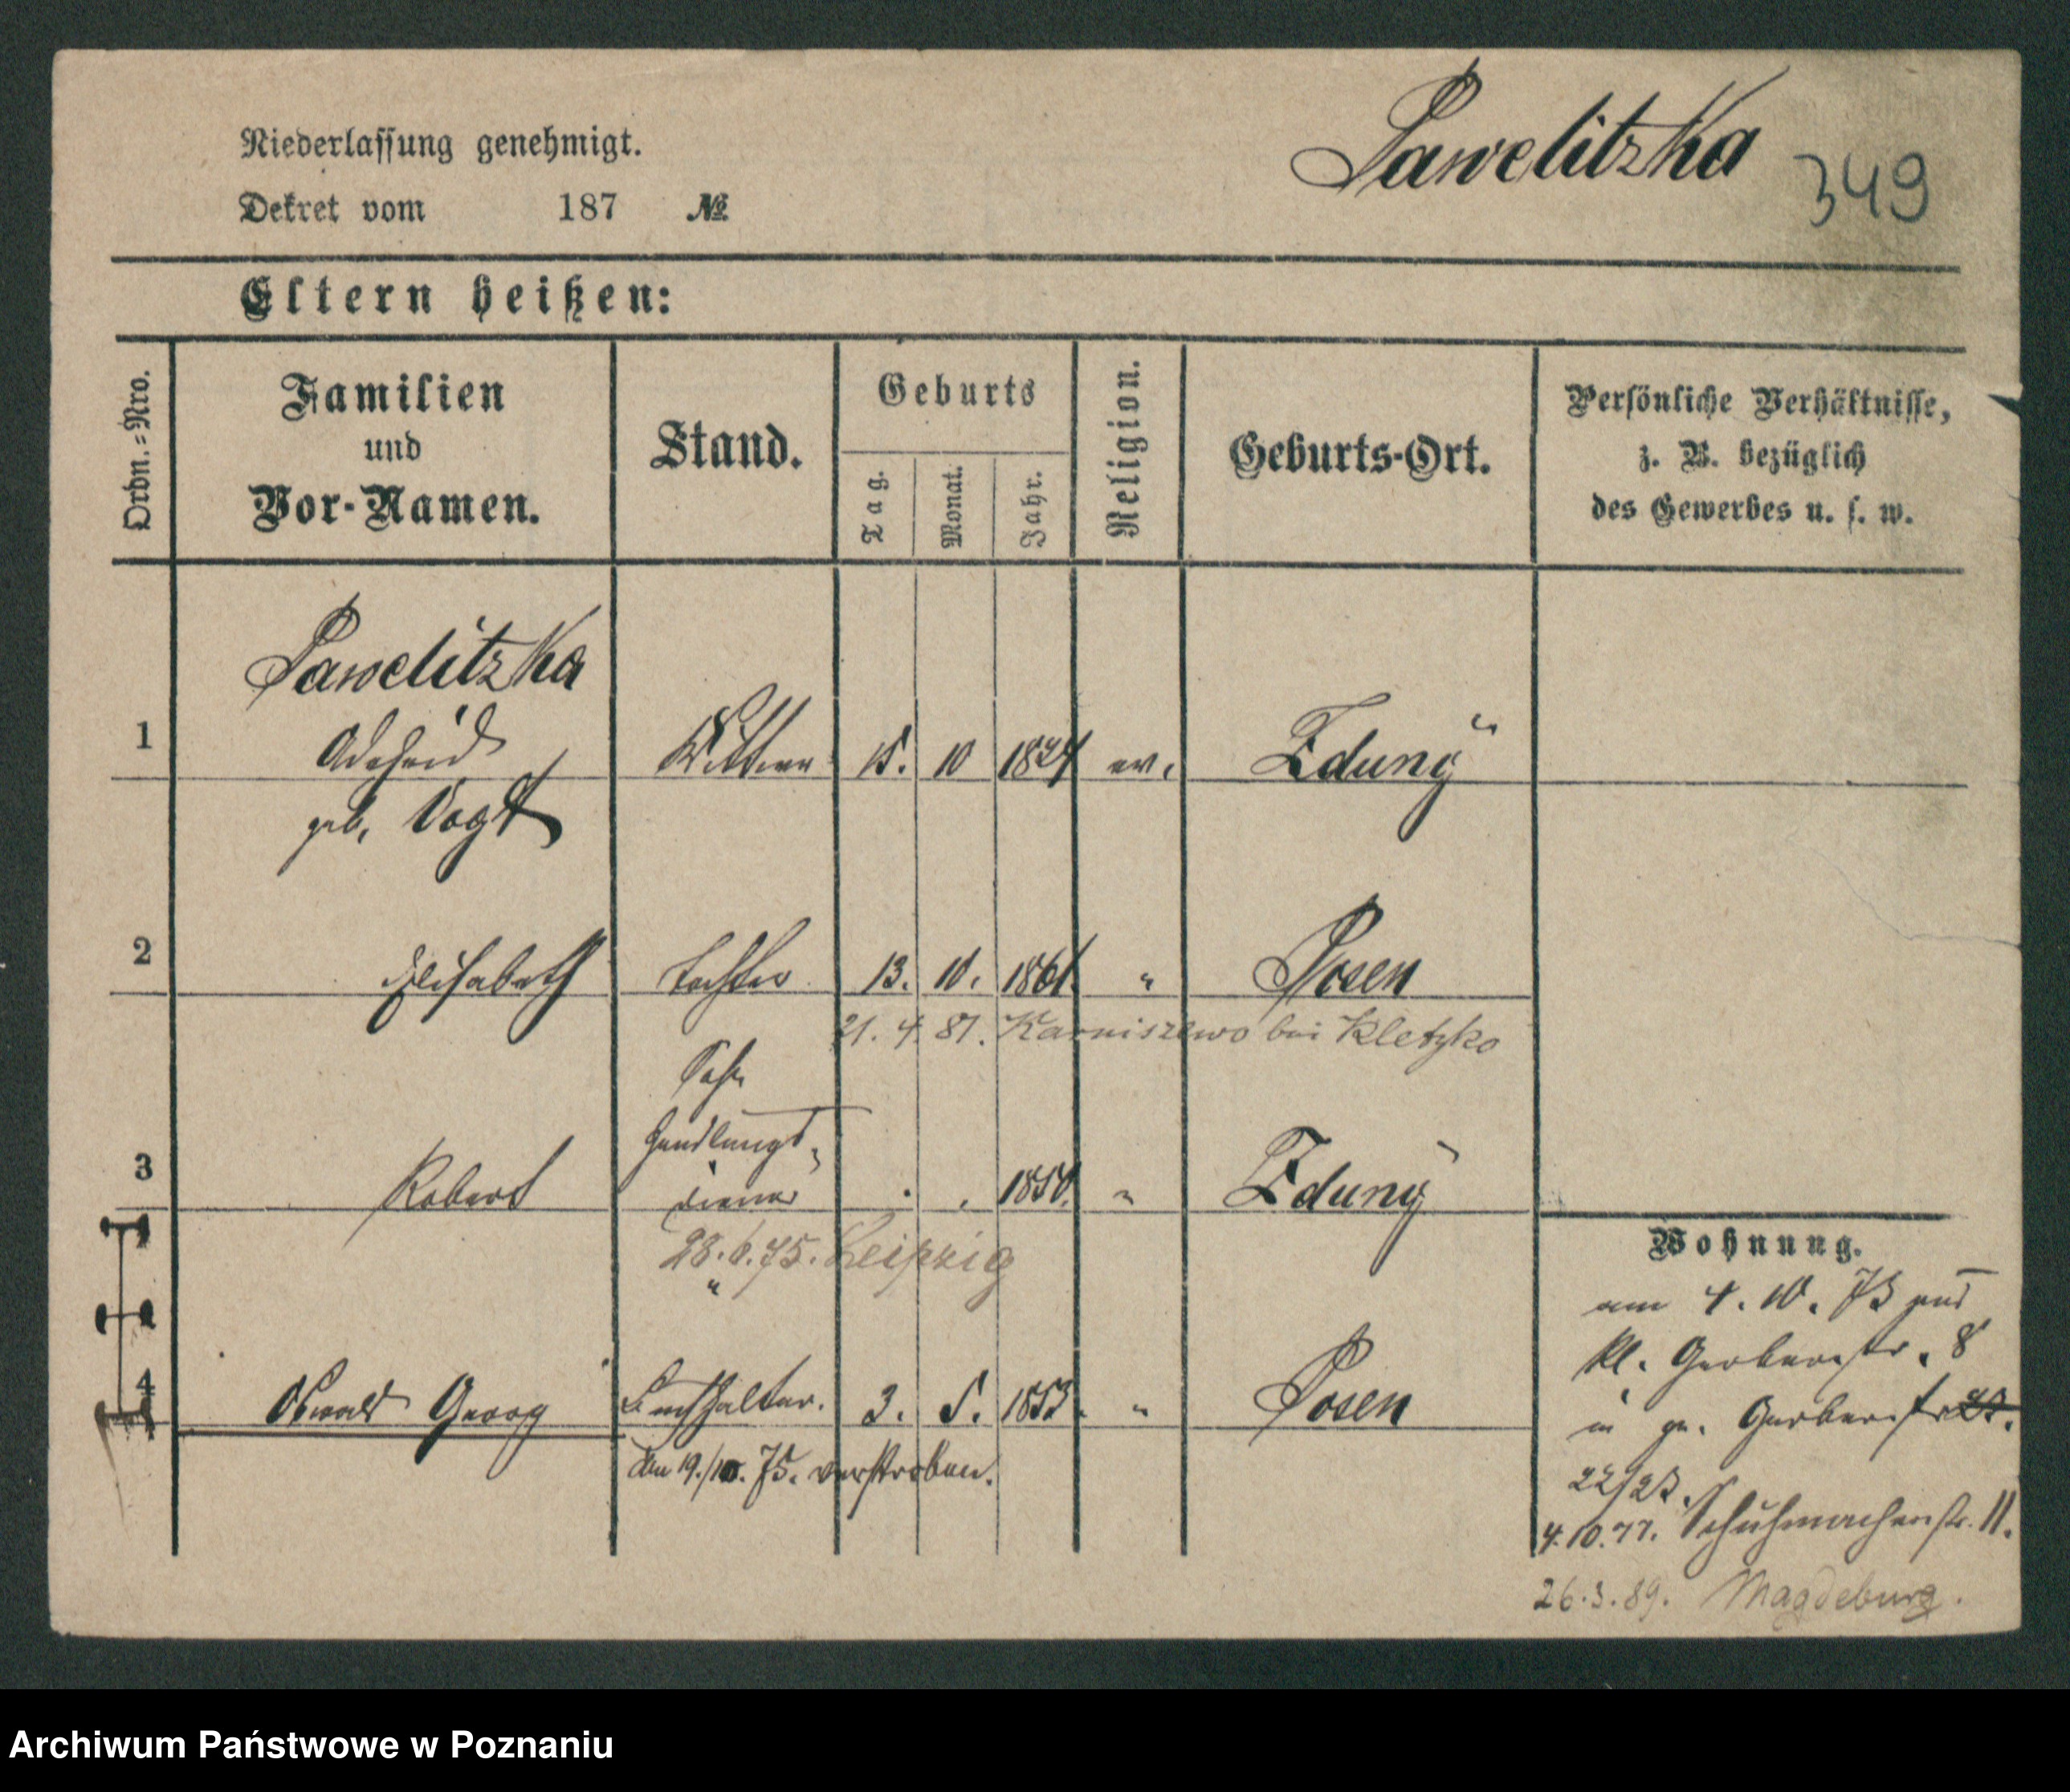 Niederlassung genehmigt.
Pawelitzka 349
Dekret vom 187 №
Eltern heißen:
Ordn.=Nro.
Familien
und
Vor-Namen.
Stand.
Geburts
Tag.
Monat.
Jahr.
Religion.
Geburts-Ort.
Persönliche Verhältnisse,
z. B. bezüglich
des Gewerbes u. s. w.
Pawelitzka
1 Adelheid Wittwe 15. 10 1824 ev. Zduny
geb. Vogt
2 Elisabeth Tochter 13. 10. 1861. " Posen
21. 4. 81. Karniszewo bei Kletzko
Sohn
Handlungs-
3 Robert diener 1850. " Zduny
28. 6. 75. Leipzig
"
4 Oswald Georg Buchhalter. 3. 5. 1853. " Posen
den 19./10. 75. verstorben.
Wohnung.
am 4. 10. 73 aus
kl. Gerberstr. 8
in gr. Gerberstr 23.
22/23.
4.10.77. Schuhmacherstr. 11.
26.3.89. Magdeburg.
Archiwum Państwowe w Poznaniu